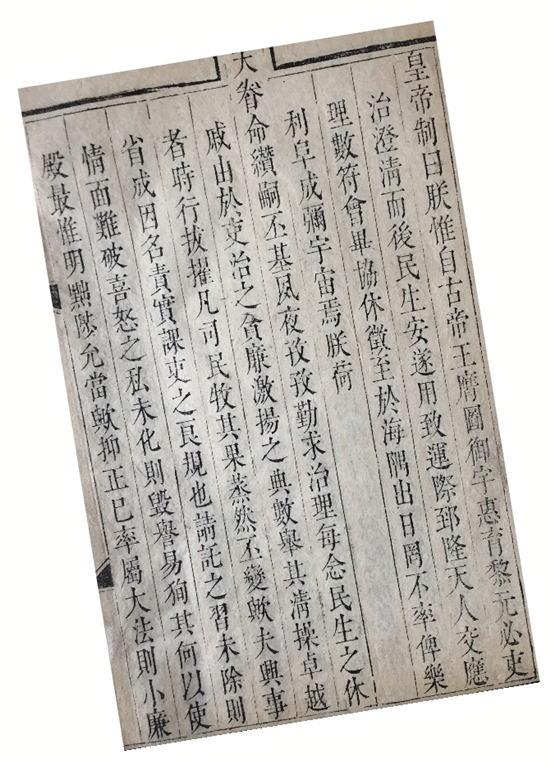 皇帝制曰朕惟自古帝王膺圖御宇惠育黎元必吏
治澄清而後民生安遂用致運際郅隆天人交應
理數符會畢協休徵至於海隅出日罔不率俾樂
利阜成彌宇宙焉朕荷
天眷命纘嗣丕基夙夜孜孜勤求治理每念民生之休
戚由於吏治之貪廉激揚之典數舉其清操卓越
者時行拔擢凡司民牧其果蒸然丕變歟夫興事
省成因名責實課吏之良規也請託之習未除則
情面難破喜怒之私未化則毀譽易狥其何以使
殿最惟明黜陟允當歟抑正己率屬大法則小廉